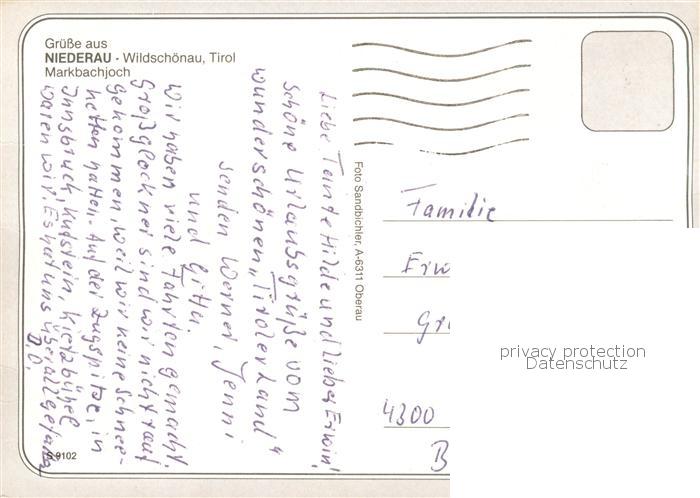 Grüße aus
NIEDERAU - Wildschönau, Tirol
Markbachjoch
Liebe Tante Hilde und lieber Erwin!
Schöne Urlaubsgrüße vom
wunderschönen „Tirolerland"
senden Werner, Jenni
und Gitta.
Wir haben viele Fahrten gemacht.
Großglockner sind wir nicht rauf
gekommen, weil wir keine Schnee-
ketten hatten. Auf der Zugspitze, in
Innsbruck, Kufstein, Kietzbühel
waren wir. Es hat uns überall gefallen
D.O.
S 9102
Foto Sandbichler, A-6311 Oberau
Familie
Erw
Gr
4300
B
privacy protection
Datenschutz